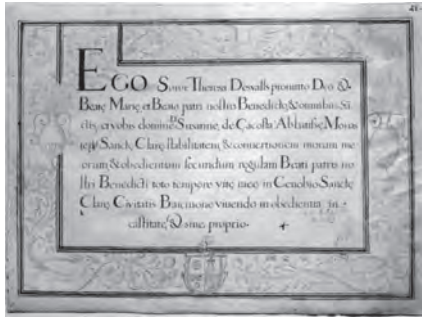 EGO Soror Theresa Dessalls promitto Deo &
Beatę Marię et Beato patri nostro Benedicto, & omnibus Sā
ctis, et vobis domine Susanne de Çacosta Abbatisse Monas
terij Sanctę Clarę stabilitatem, & conversionem morum me
orum, & obedientiam secundum regulam Beati patris no
stri Benedicti toto tempore vitę meę in Cenobio Sanctę
Clarę Civitatis Barcinone vivendo in obedientia, in
castitate, & sine proprio.